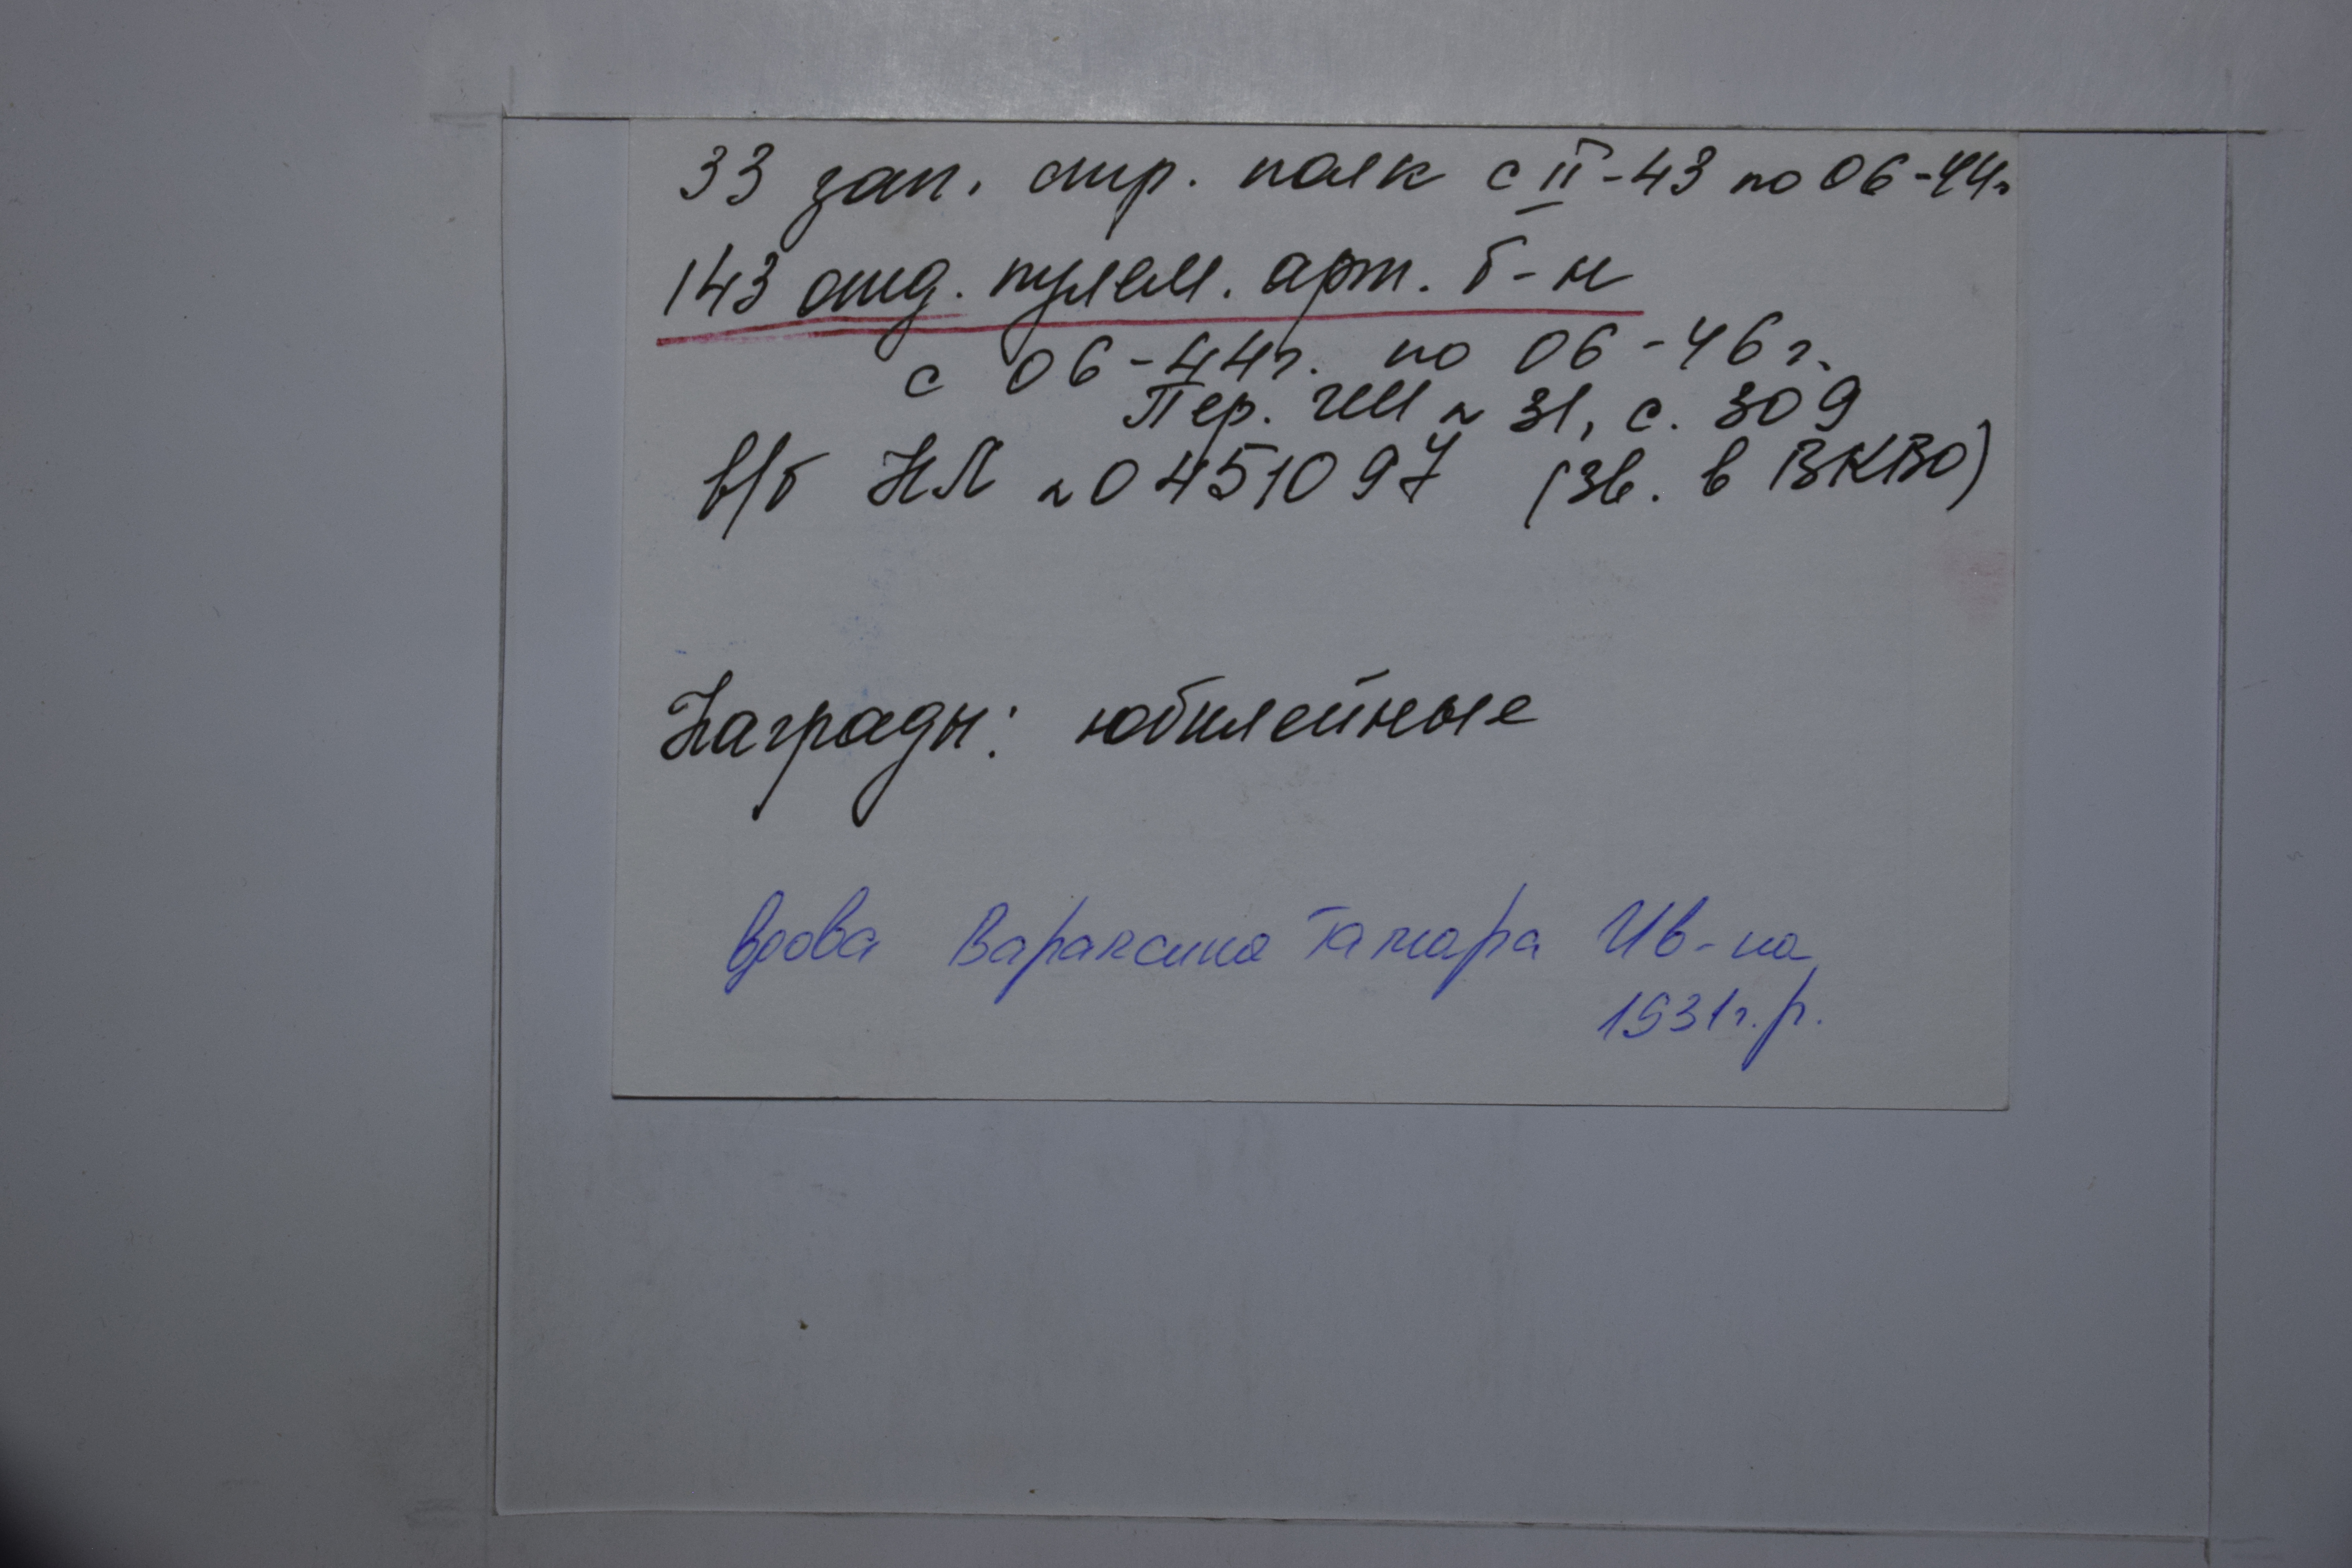 33 зап. стр. полк с II-43 по 06-44г
143 отд. пулем. арт. б-н
с 06-44г. по 06-46г.
Пер. ГШ № 31, с. 309
в/б НЛ № 0451097 (зв. в ВКВО)
Награды: юбилейные
вдова Вараксина Тамара Ив-на
1931г.р.